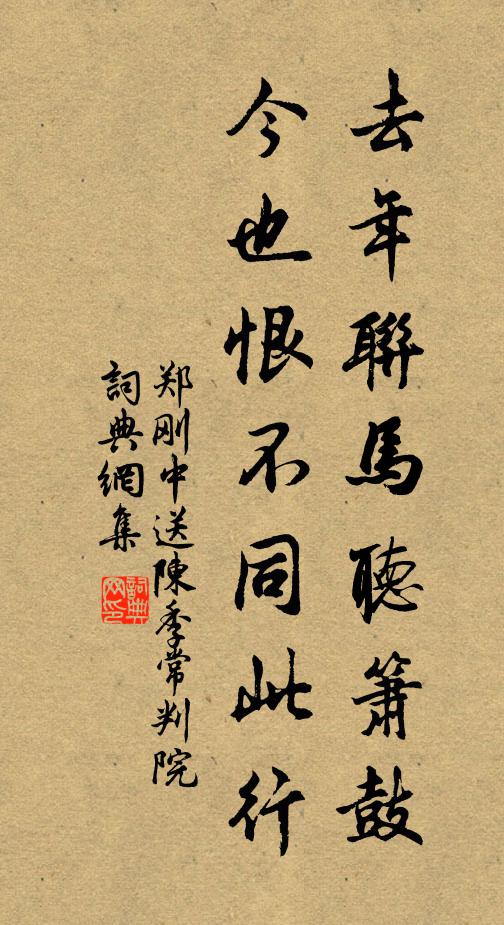 去年聯馬聽簫鼓
今也恨不同此行
郑刚中送陳季常判院
詞典網集
詞典網印